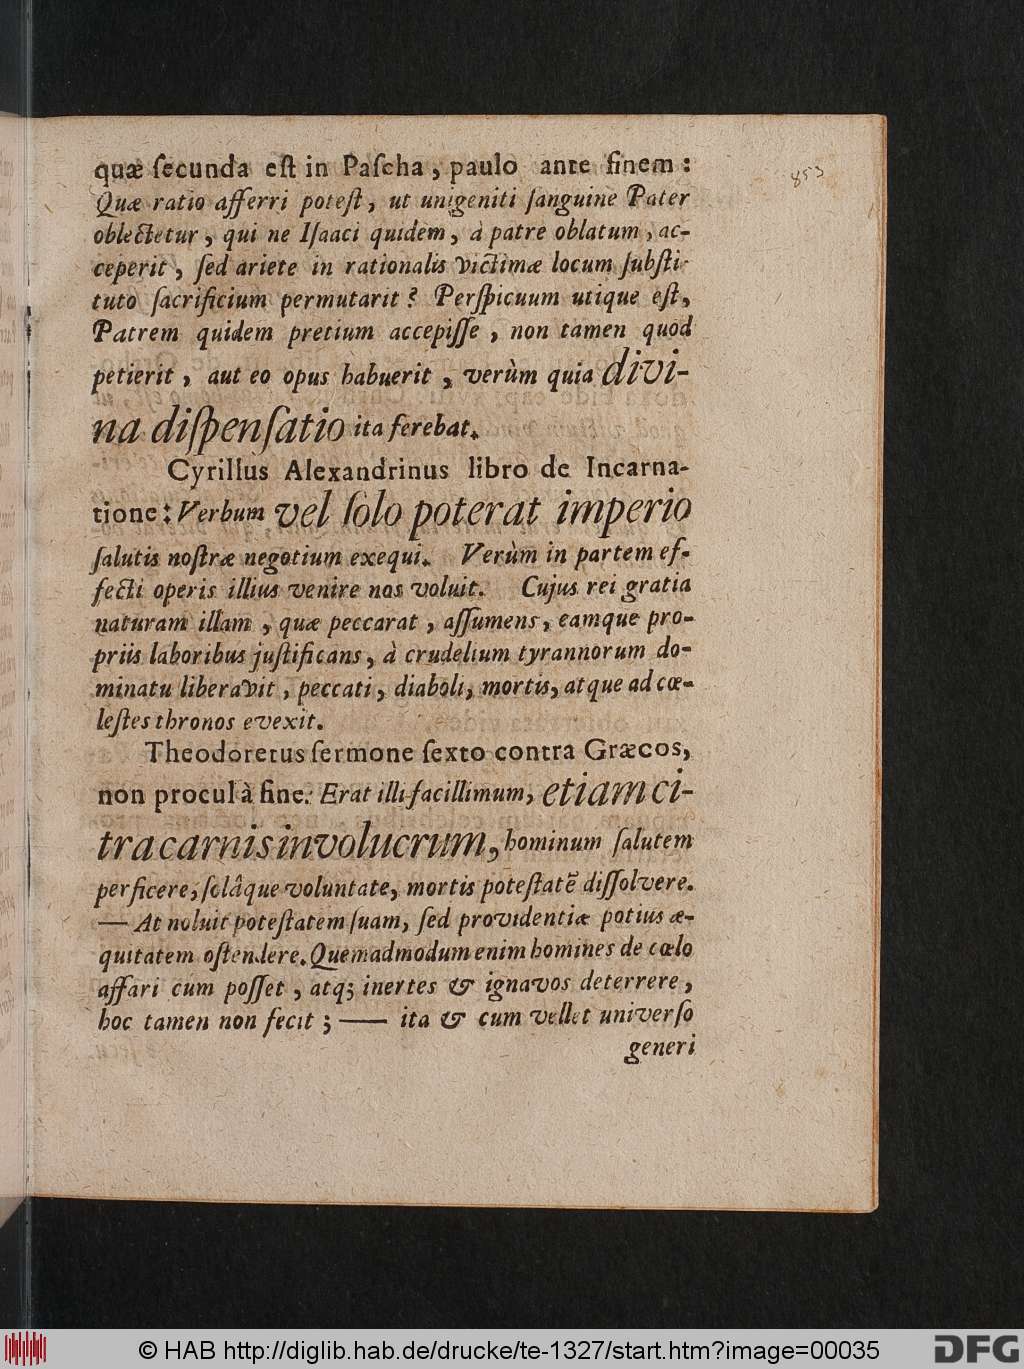 853
quæ ſecunda eſt in Paſcha, paulo ante finem:
Quæ ratio afferri poteſt, ut unigeniti ſanguine Pater
oblectetur, qui ne Iſaaci quidem, à patre oblatum, ac-
ceperit, ſed ariete in rationalis victimæ locum ſubſti-
tuto ſacrificium permutarit? Perſpicuum utique eſt,
Patrem quidem pretium accepiſſe, non tamen quod
petierit, aut eo opus habuerit, verùm quia divi-
na diſpenſatio ita ferebat.
Cyrillus Alexandrinus libro de Incarna-
tione: Verbum vel ſolo poterat imperio
ſalutis noſtræ negotium exequi. Verùm in partem ef-
fecti operis illius venire nos voluit. Cujus rei gratia
naturam illam, quæ peccarat, aſſumens, eamque pro-
priis laboribus juſtificans, à crudelium tyrannorum do-
minatu liberavit, peccati, diaboli, mortis, atque ad cœ-
leſtes thronos evexit.
Theodoretus ſermone ſexto contra Græcos,
non procul à fine: Erat illi facillimum, etiam ci-
tra carnis involucrum, hominum ſalutem
perficere, ſolâque voluntate, mortis poteſtatē diſſolvere.
— At noluit poteſtatem ſuam, ſed providentiæ potius æ-
quitatem oſtendere. Quemadmodum enim homines de cœlo
affari cum poſſet, atq; inertes & ignavos deterrere,
hoc tamen non fecit; — ita & cum vellet univerſo
generi
© HAB http://diglib.hab.de/drucke/te-1327/start.htm?image=00035
DFG